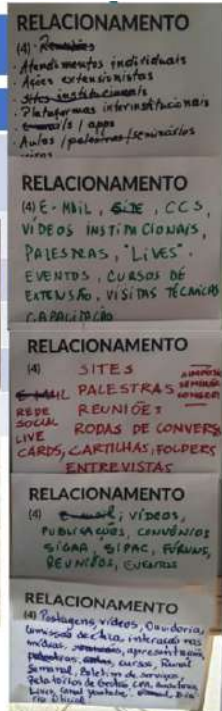 RELACIONAMENTO
(4) · Reuniões
· Atendimentos individuais
· Ações extensionistas
· Sites institucionais
· Plataformas interinstitucionais
/ apps
· Aulas / palestras / seminários
RELACIONAMENTO
(4) E-MAIL, SITE, CCS,
VÍDEOS INSTITUCIONAIS,
PALESTRAS, "LIVES".
EVENTOS, CURSOS DE
EXTENSÃO, VISITAS TÉCNICAS
CAPACITAÇÃO
RELACIONAMENTO
(4) SITES
E-MAIL PALESTRAS
REDE REUNIÕES
SOCIAL
LIVE RODAS DE CONVERSA
CARDS, CARTILHAS, FOLDERS
ENTREVISTAS
RELACIONAMENTO
(4) E-mail; VÍDEOS,
PUBLICAÇÕES, CONVÊNIOS
SIGAA, SIPAC, FÓRUNS,
REUNIÕES, EVENTOS
RELACIONAMENTO
(4) Postagens, vídeos, Ouvidoria,
Comissão de ética, interação nas
mídias, apresentação,
palestras, cursos, Rural
Semanal, Boletim de serviços,
Relatórios de gestão, CPA,
Lives, Canal youtube, Diá
rio Oficial